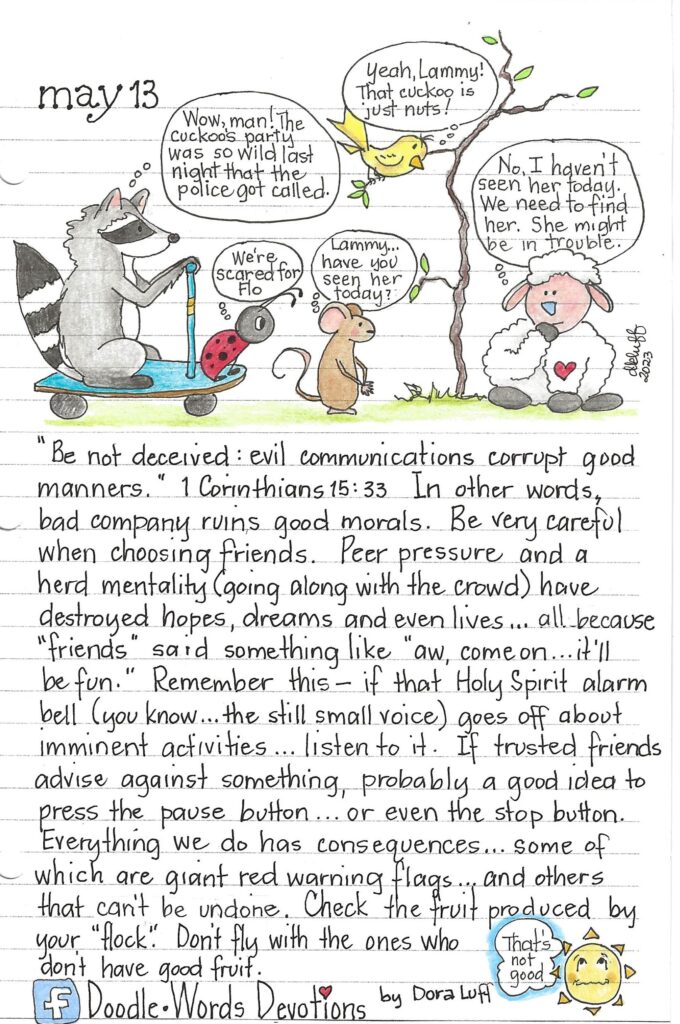 may 13
Wow, man! The
cuckoo's party
was so wild last
night that the
police got called.
Yeah, Lammy!
That cuckoo is
just nuts!
No, I haven't
seen her today.
We need to find
her. She might
be in trouble.
We're
scared for
Flo
Lammy...
have you
seen her
today?
dbluff
2023
"Be not deceived: evil communications corrupt good
manners." 1 Corinthians 15:33 In other words,
bad company ruins good morals. Be very careful
when choosing friends. Peer pressure and a
herd mentality (going along with the crowd) have
destroyed hopes, dreams and even lives... all because
"friends" said something like "aw, come on...it'll
be fun." Remember this - if that Holy Spirit alarm
bell (you know...the still small voice) goes off about
imminent activities... listen to it. If trusted friends
advise against something, probably a good idea to
press the pause button... or even the stop button.
Everything we do has consequences... some of
which are giant red warning flags... and others
that can't be undone. Check the fruit produced by
your "flock." Don't fly with the ones who
don't have good fruit.
That's
not
good
f Doodle•Words Devotions by Dora Luff